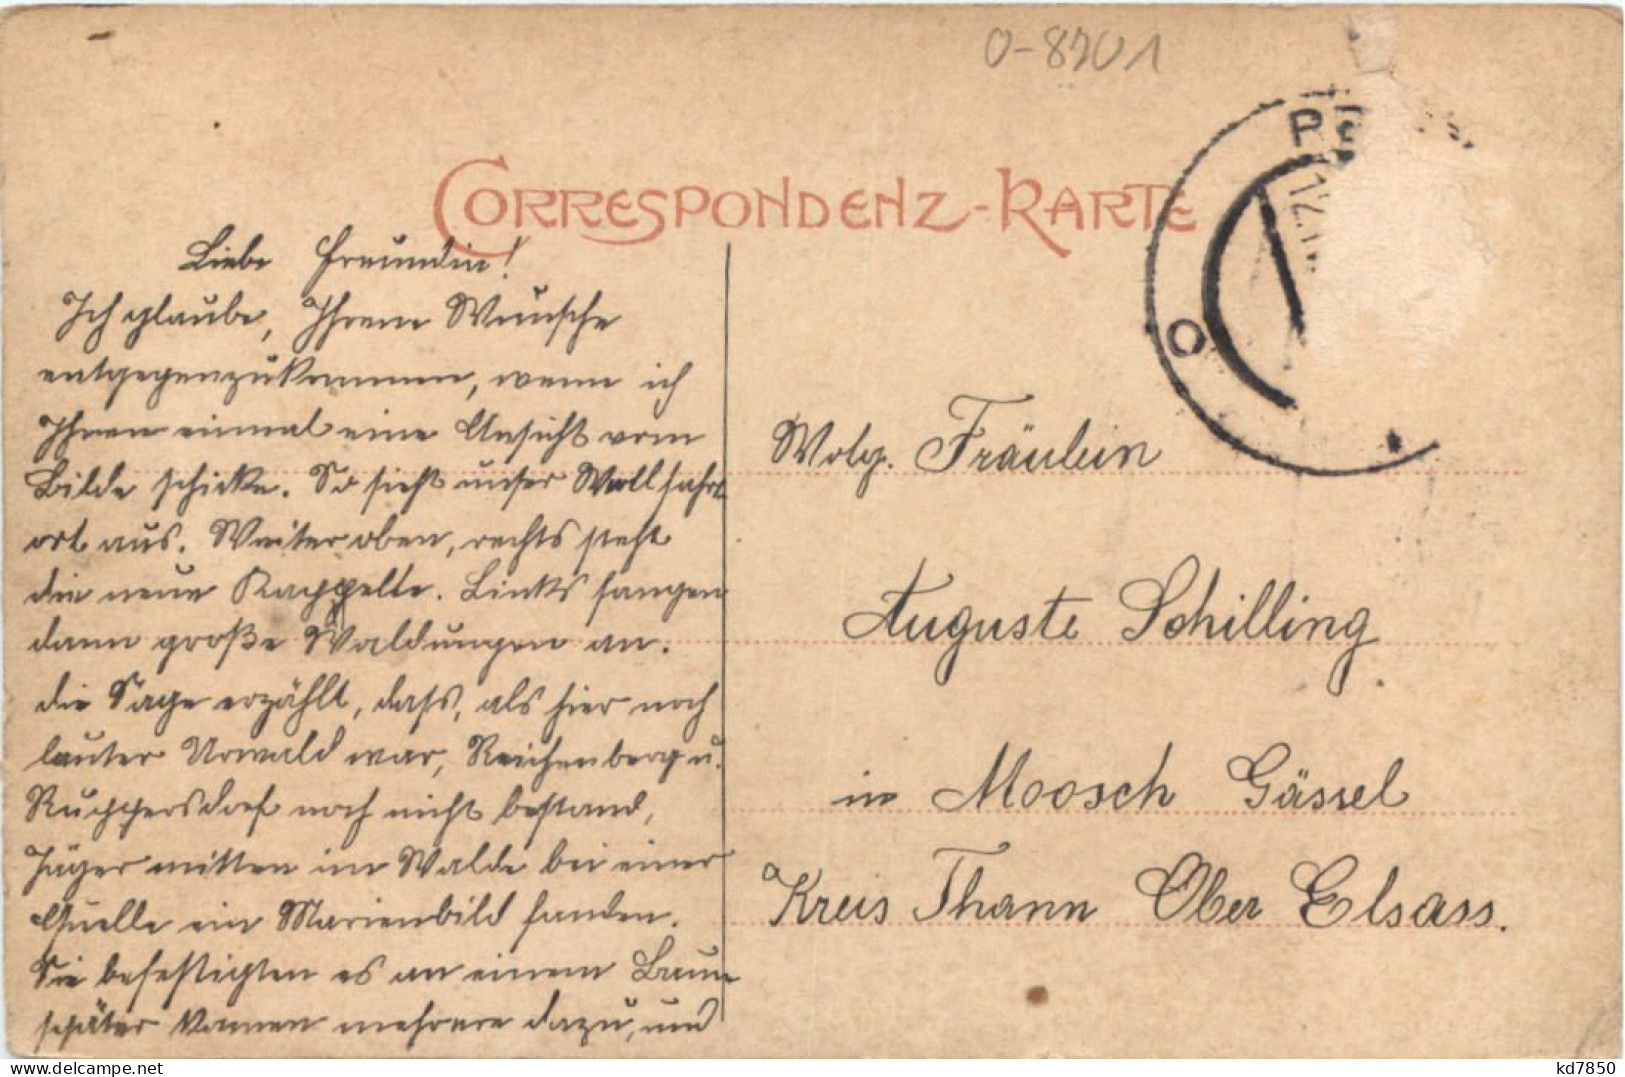 0-8901
CORRESPONDENZ-KARTE
Liebe Freundin!
Ich glaube, Ihrem Wunsche
entgegenzukommen, wenn ich
Ihnen einmal eine Ansicht vom
Bilde schicke. So sieht unser Wallfahrt
ort aus. Weiter oben, rechts steht
die neue Kappelle. Links fangen
dann große Waldungen an.
die Sage erzählt, dass, als hier noch
lauter Urwald war, Reichenberg u.
Ruppersdorf noch nicht bestand,
Jäger mitten im Walde bei einer
Quelle ein Marienbild fanden.
Sie befestigten es an einem Baum
später kamen mehrere dazu, und
Wolg. Fräulein
Auguste Schilling
in Moosch Gässel
Kreis Thann Ober Elsass.
kd7850